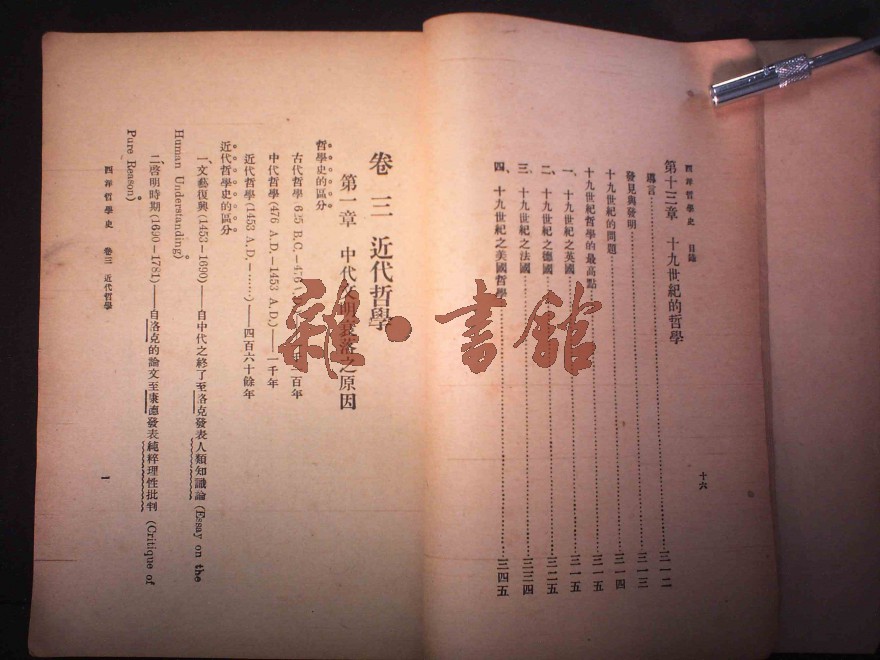 西洋哲學史 目錄
第十三章 十九世紀的哲學
導言……三一二
發見與發明……三一三
十九世紀的問題……三一四
十九世紀哲學的最高點……三一五
一、十九世紀之英國……三一五
二、十九世紀之德國……三二五
三、十九世紀之法國……三三四
四、十九世紀之美國哲學……三四五
十六
卷三 近代哲學
第一章 中代文明衰落之原因
哲學史的區分
古代哲學 625 B.C.—476 百年
中代哲學(476 A.D.—1453 A.D.)——一千年
近代哲學(1453 A.D.—……)——四百六十餘年
近代哲學史的區分
一、文藝復興(1453—1690)——自中代之終了至洛克發表人類知識論 (Essay on the
Human Understanding)
二、啓明時期(1690—1781)——自洛克的論文至康德發表純粹理性批判 (Critique of
Pure Reason)
西洋哲學史 卷三 近代哲學
一
雜·書館